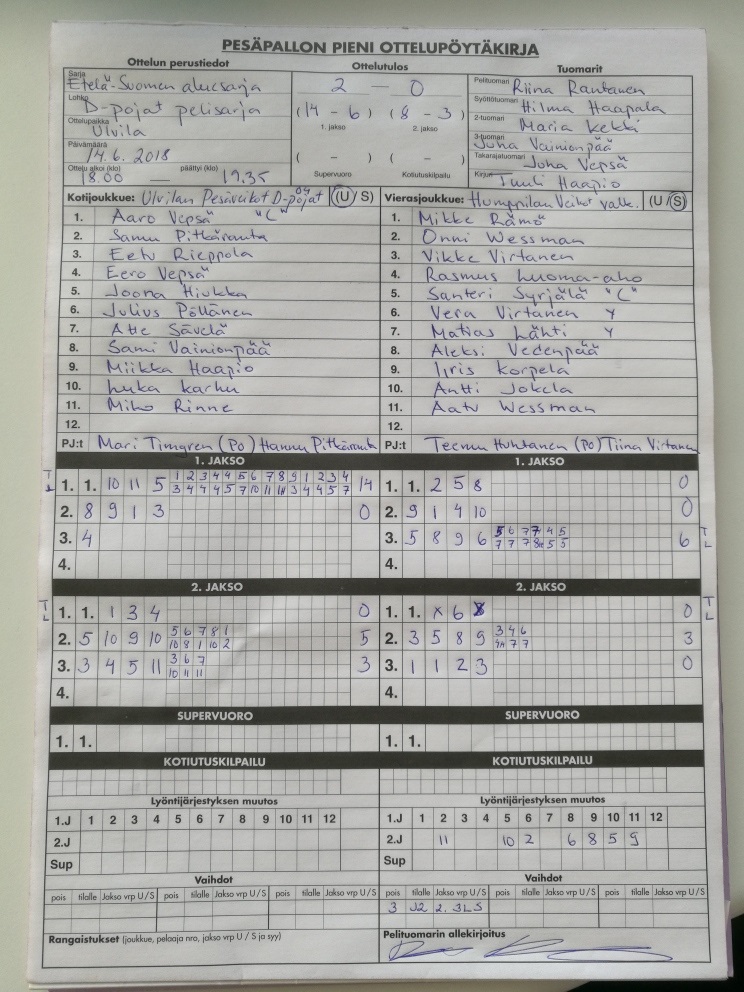 PESÄPALLON PIENI OTTELUPÖYTÄKIRJA
Ottelun perustiedot Ottelutulos Tuomarit
Sarja Etelä-Suomen aluesarja 2 – 0 Pelituomari Riina Rantanen
Lohko D-pojat pelisarja (14 – 6) (8 – 3) Syöttötuomari Hilma Haapala
Ottelupaikka Ulvila 1. jakso 2. jakso 2-tuomari Maria Kekki
3-tuomari Juha Vainionpää
Päivämäärä 14.6.2018 ( – ) ( – ) Takarajatuomari Juha Vepsä
Ottelu alkoi (klo) 18.00 — päättyi (klo) 19.35 Supervuoro Kotiutuskilpailu Kirjuri Tuuli Haapio
Kotijoukkue: Ulvilan Pesäveikot D-pojat 04 (U/S) Vierasjoukkue: Humppilan Veikot valk. (U/S)
1. Aaro Vepsä "C" 1. Mikke Rämö
2. Samu Pitkäranta 2. Onni Wessman
3. Eetu Rieppola 3. Vikke Virtanen
4. Eero Vepsä 4. Rasmus Luoma-aho
5. Joona Hiukka 5. Santeri Syrjälä "C"
6. Julius Pöllänen 6. Vera Virtanen Y
7. Atte Sävelä 7. Matias Lähti Y
8. Sami Vainionpää 8. Aleksi Vedenpää
9. Miikka Haapio 9. Iiris Korpela
10. Luka Karhu 10. Antti Jokela
11. Miko Rinne 11. Aatu Wessman
12. 12.
PJ:t Mari Timgren (PO) Hannu Pitkäranta PJ:t Teemu Huhtanen (PO) Tiina Virtanen
1. JAKSO 1. JAKSO
1 2 3 4 4 5 6 7 8 9 1 2 3 4
1. 1. 10 11 5 14 1. 1. 2 5 8 0
3 4 4 4 5 7 10 11 11 3 4 4 5 7
2. 8 9 1 3 0 2. 9 1 4 10 0
3. 4 3. 5 8 9 6 6 T L
4. 4.
2. JAKSO 2. JAKSO
T L 1. 1. 1 3 4 0 1. 1. x 6 0 T L
5 6 7 8 1 3 4 6
2. 5 10 9 10 5 2. 3 5 8 9 3
10 8 1 10 2 7 7
3 6 7
3. 3 4 5 11 3 3. 1 1 2 3 0
10 11 11
4. 4.
SUPERVUORO SUPERVUORO
1. 1. 1. 1.
KOTIUTUSKILPAILU KOTIUTUSKILPAILU
Lyöntijärjestyksen muutos Lyöntijärjestyksen muutos
1.J 1 2 3 4 5 6 7 8 9 10 11 12 1.J 1 2 3 4 5 6 7 8 9 10 11 12
2.J 2.J 11 10 2 6 8 5 9
Sup Sup
Vaihdot Vaihdot
pois tilalle Jakso vrp U/S pois tilalle Jakso vrp U/S pois tilalle Jakso vrp U/S pois tilalle Jakso vrp U/S pois tilalle Jakso vrp U/S pois tilalle Jakso vrp U/S
3 J2 2. 3LS
Rangaistukset (joukkue, pelaaja nro, jakso vrp U / S ja syy) Pelituomarin allekirjoitus